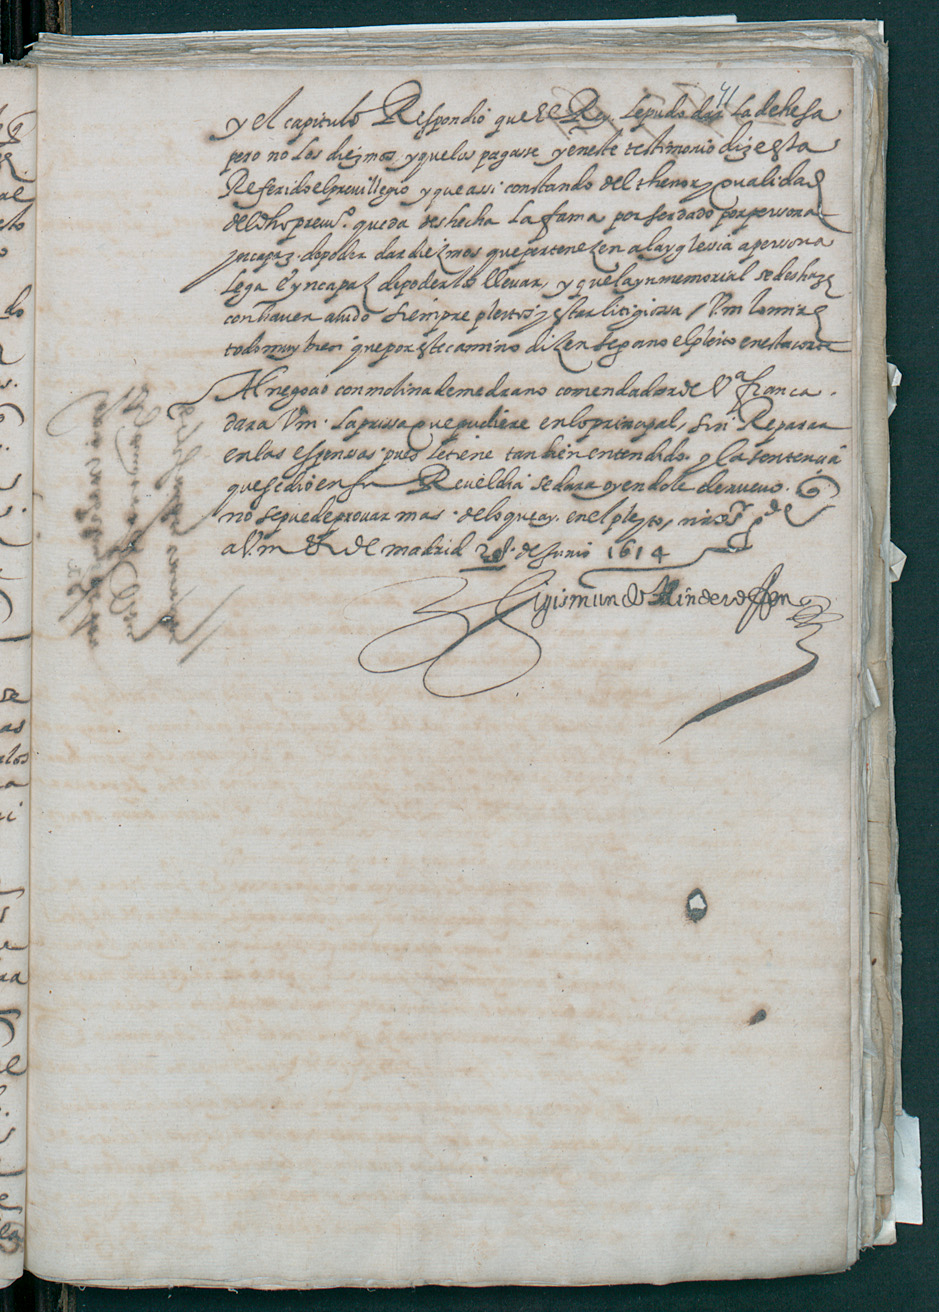 41
y el capitulo Respondio que el Rey le pudo dar La dehesa
pero no Los diezmos, y que los pagasse y eneste testimonio dize esta
Referido el previllegio y que assi constando del thenor y qualidad
del dho previ.º queda deshecha La fama por ser dado por persona
yncapaz de poder dar diezmos que pertenezen a la yglesia a persona
Lega e yncapaz de poderlos llevar, y que la ynmemorial se deshaze
con haver avido siempre pleitos y estar litigiosa / V.m lo mire
todo muy bien que por este camino dizen se gano el pleito en esta corte
Al negocio con molina de medrano comendador de V.ª franca
dara V.m. La prissa que pudiere en lo principal, sin Reparar
en las espensas pues le tiene tan bien entendido. y la sentencia
que se dio en su Reveldia se dara oyendole de nuevo.
no se puede provar mas de lo que ay en el pleyto, nro s.r g.de
a V.m de madrid 28 de Junio 1614
Sigismundo